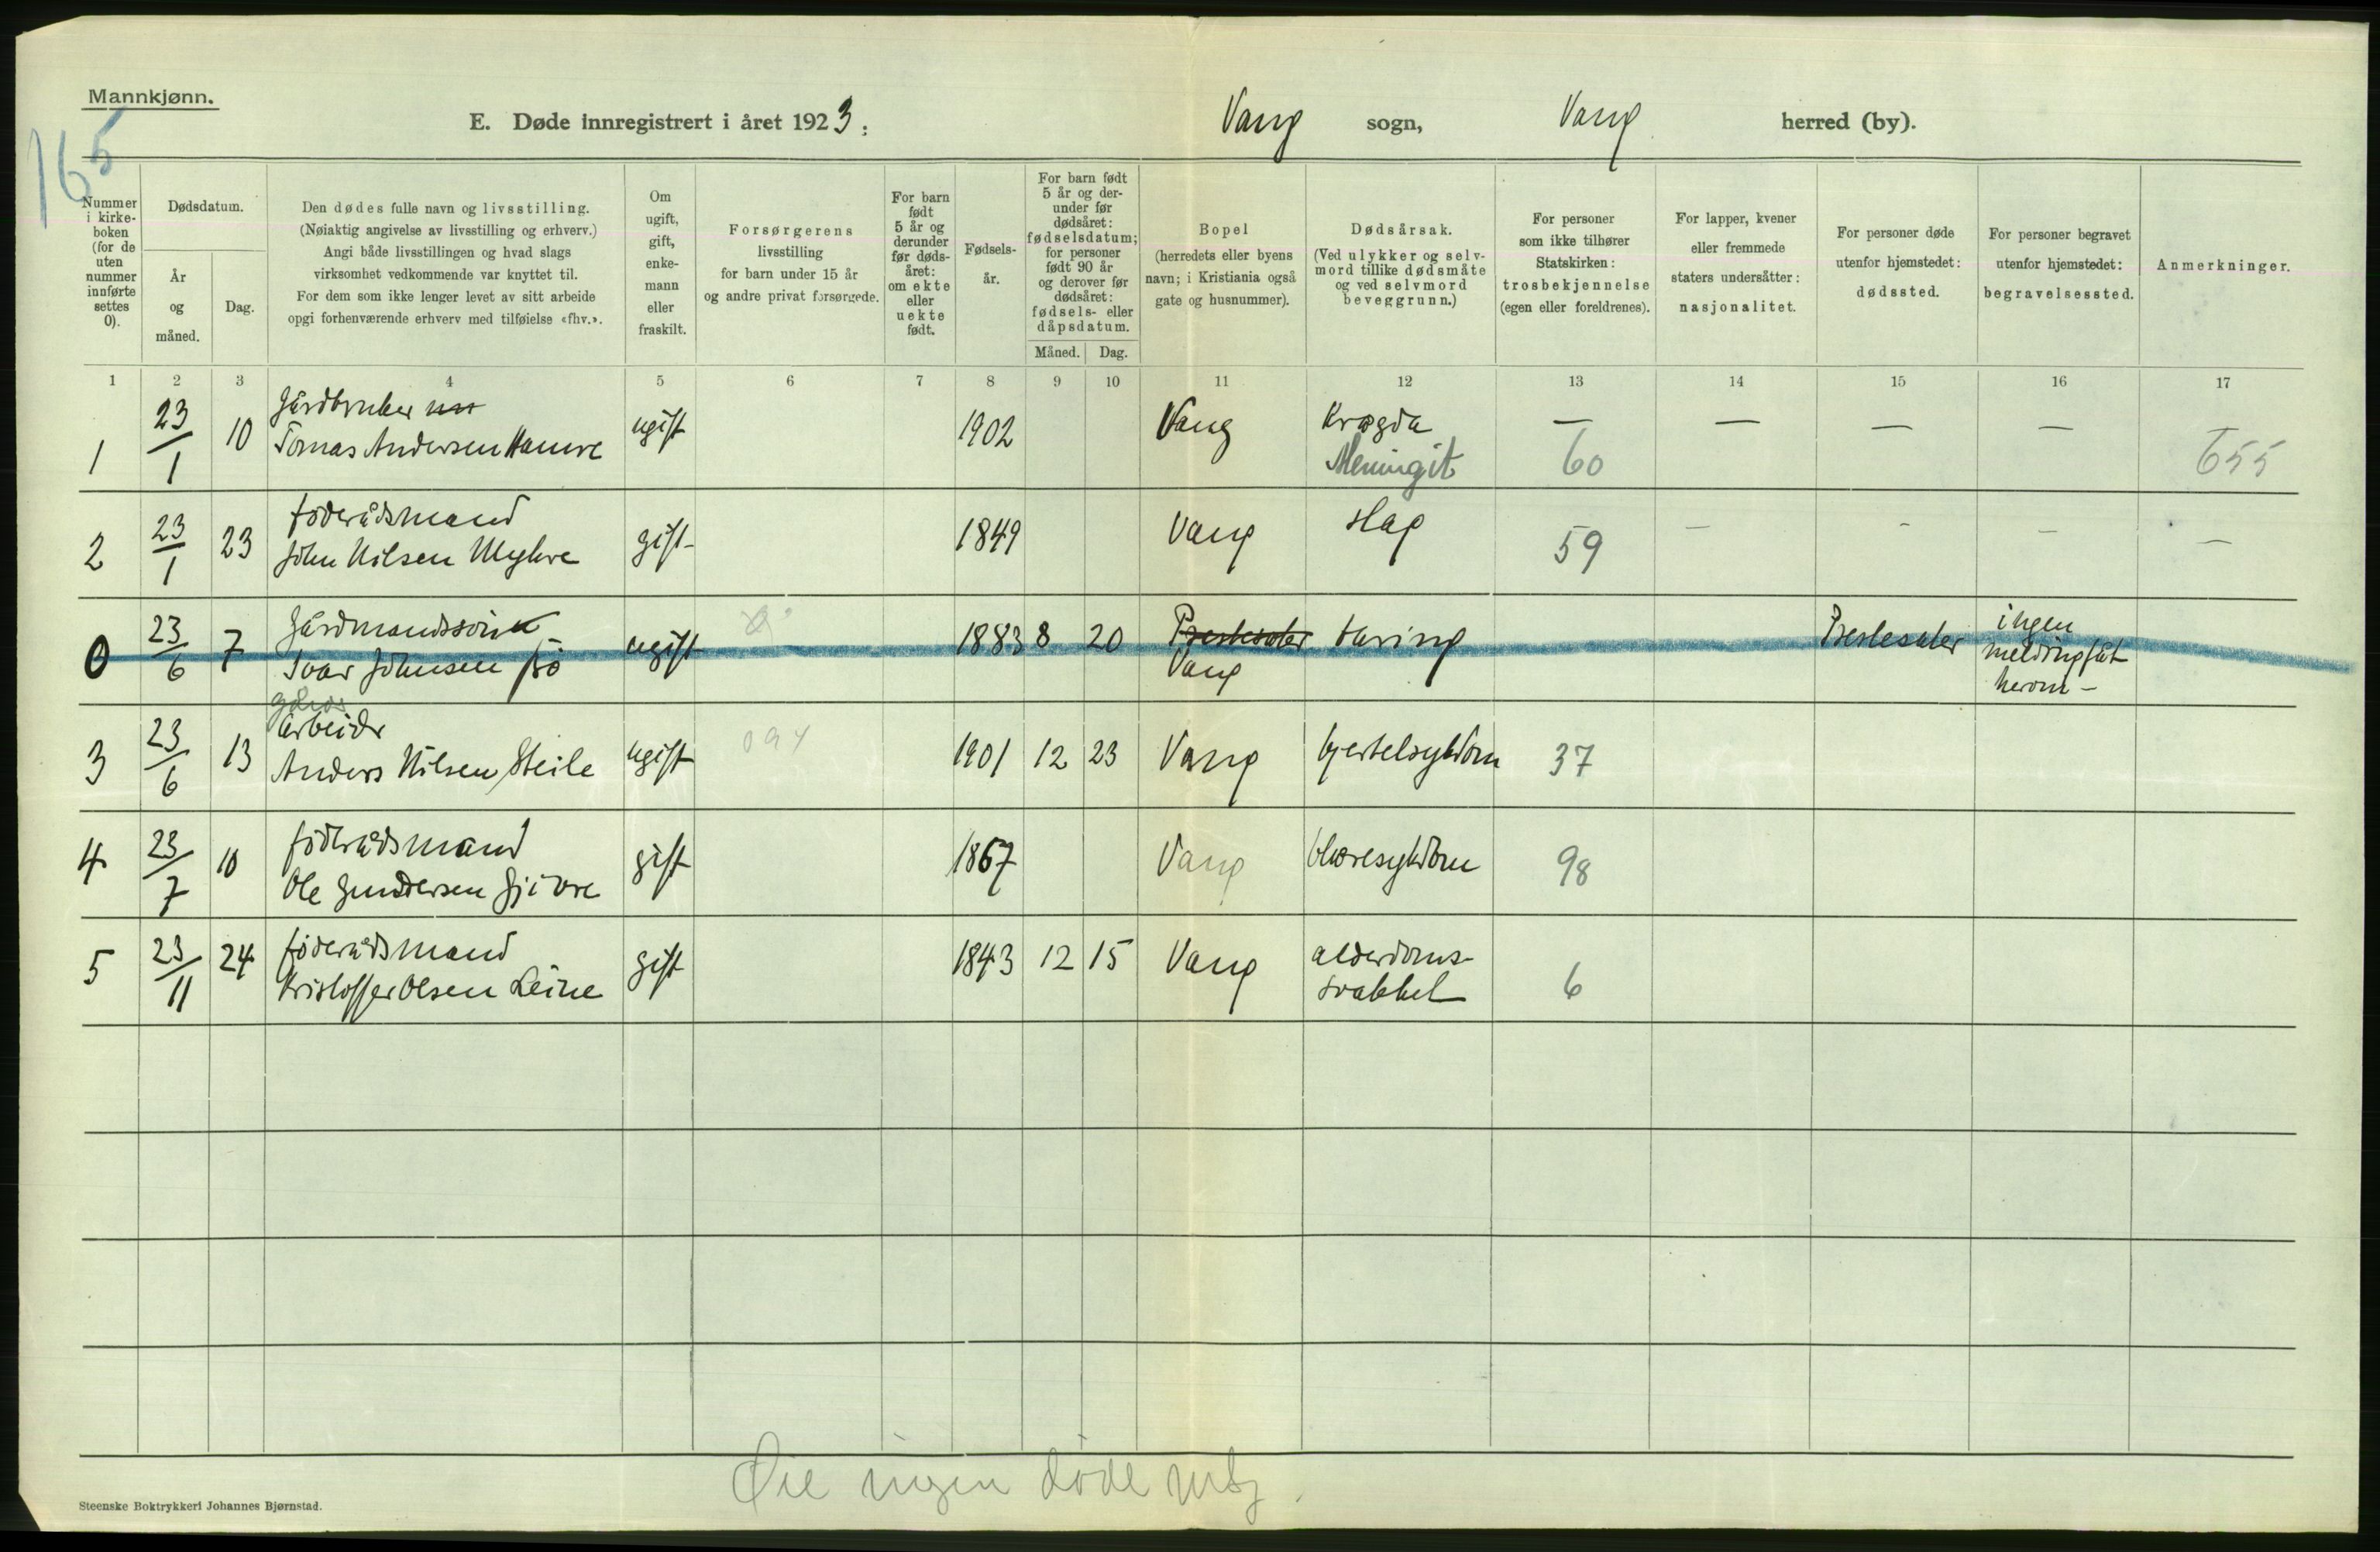 Mannkjønn.
165
E. Døde innregistrert i året 1923: Vang sogn, Vang herred (by).
Nummer i kirke-boken (for de uten nummer innførte settes 0).
Dødsdatum.
År og måned.
Dag.
Den dødes fulle navn og livsstilling.
(Nøiaktig angivelse av livsstilling og erhverv.)
Angi både livsstillingen og hvad slags
virksomhet vedkommende var knyttet til.
For dem som ikke lenger levet av sitt arbeide
opgi forhenværende erhverv med tilføielse «fhv.».
Om ugift, gift, enke-mann eller fraskilt.
Forsørgerens
livsstilling
for barn under 15 år
og andre privat forsørgede.
For barn født 5 år og derunder før døds-året: om ekte eller uekte født.
Fødsels-år.
For barn født 5 år og der-under før dødsåret: fødselsdatum; for personer født 90 år og derover før dødsåret: fødsels- eller dåpsdatum.
Måned. Dag.
Bopel
(herredets eller byens
navn; i Kristiania også
gate og husnummer).
Dødsårsak.
(Ved ulykker og selv-
mord tillike dødsmåte
og ved selvmord
beveggrunn.)
For personer
som ikke tilhører
Statskirken:
trosbekjennelse
(egen eller foreldrenes).
For lapper, kvener
eller fremmede
staters undersåtter:
nasjonalitet.
For personer døde
utenfor hjemstedet:
dødssted.
For personer begravet
utenfor hjemstedet:
begravelsessted.
Anmerkninger.
1 2 3 4 5 6 7 8 9 10 11 12 13 14 15 16 17
Gårdbruker
1 23/1 10 Tomas Andersen Hamre ugift 1902 Vang Krægda — — — — —
Meningit 60 655
føderådsmand
2 23/1 23 John Nilsen Myhre gift 1849 Vang slag 59 — - — —
Gårdmandssøn
0 23/6 7 Ivar Johnsen Bø ugift 1883 8 20 Prestesæter Vang tæring Prestesæter ingen
melding fåt
herom —
gdbrs
arbeidr
3 23/6 13 Anders Nilsen Steile ugift 094 1901 12 23 Vang hjertesykdom 37
føderådsmand
4 23/7 10 Ole Gundersen Gjevre gift 1867 Vang blæresykdom 98
føderådsmand
5 23/11 24 Kristoffer Olsen Leine gift 1843 12 15 Vang alderdoms-
svakhet 6
Øie ingen døde
Steenske Boktrykkeri Johannes Bjørnstad.